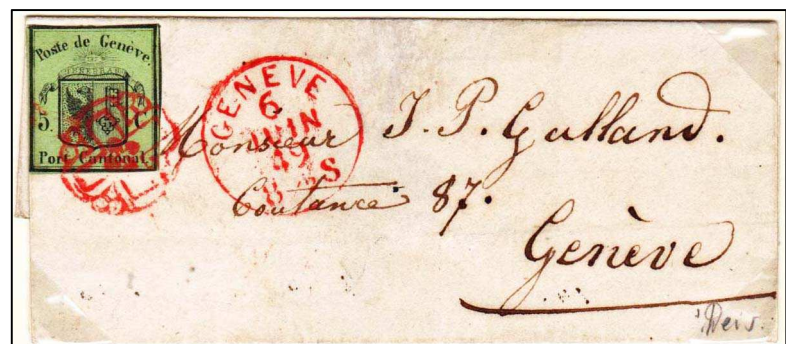 Poste de Genève.
5. C
Port Cantonal.
GENEVE
6
JUIN
49
8 S
Monsieur J. P. Galland.
Coutance 87.
Genève